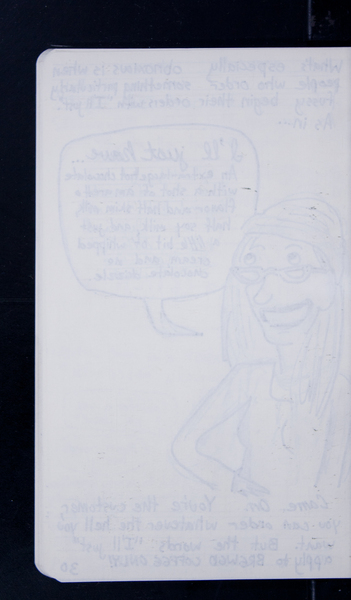 What's especially obnoxious is when
people who order something particularly
fussy begin their orders with "I'll just".
As in...
I'll just have...
An extra hot hot chocolate
with a shot of almond
flavor and half skim milk
half soy milk and just
a little bit of whipped
cream and no
chocolate drizzle
Come. On. You're the customer,
you can order whatever the hell you
want. But the words "I'll just"
apply to BREWED COFFEE ONLY!
30